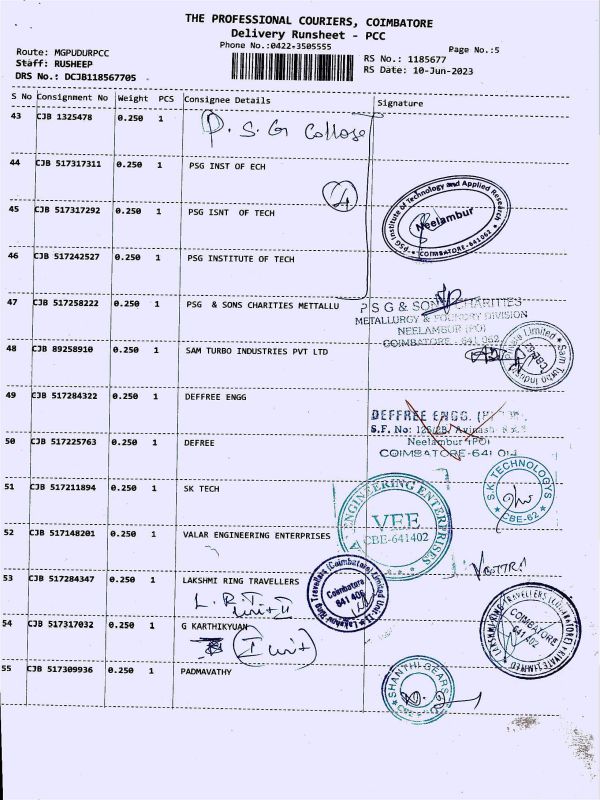 THE PROFESSIONAL COURIERS, COIMBATORE
Delivery Runsheet - PCC
Phone No.:0422-3505555
Page No.:5
Route: MGPUDURPCC
Staff: RUSHEEP
DRS No.: DCJB118567705
RS No.: 1185677
RS Date: 10-Jun-2023
S No Consignment No Weight PCS Consignee Details Signature
43 CJB 1325478 0.250 1 P. S. G College
44 CJB 517317311 0.250 1 PSG INST OF ECH
4
PSG Institute of Technology and Applied Research
Neelambur
COIMBATORE-641062
45 CJB 517317292 0.250 1 PSG ISNT OF TECH
46 CJB 517242527 0.250 1 PSG INSTITUTE OF TECH
47 CJB 517258222 0.250 1 PSG & SONS CHARITIES METTALLU
P S G & SONS CHARITIES
METALLURGY & FOUNDRY DIVISION
NEELAMBUR (PO)
COIMBATORE - 641 062
48 CJB 89258910 0.250 1 SAM TURBO INDUSTRIES PVT LTD
Sam Turbo Industry Private Limited
49 CJB 517284322 0.250 1 DEFFREE ENGG
DEFFREE ENGG. (P)
S.F. No: 125/2B, Avinash
Neelambur (PO)
COIMBATORE-641
50 CJB 517225763 0.250 1 DEFREE
51 CJB 517211894 0.250 1 SK TECH
S.K. TECHNOLOGYS
CBE-62
52 CJB 517148201 0.250 1 VALAR ENGINEERING ENTERPRISES
ENGINEERING ENTERPRISES
VEE
CBE-641402
53 CJB 517284347 0.250 1 LAKSHMI RING TRAVELLERS
L. R. T
Unit II
Lakshmi Ring Travellers (Coimbatore) Limited Unit
Coimbatore
641 406
54 CJB 517317032 0.250 1 G KARTHIKYUAN
(I Unit)
LAKSHMI RING TRAVELLERS (COIMBATORE) PRIVATE LIMITED
COIMBATORE
641 402
55 CJB 517309936 0.250 1 PADMAVATHY
SHANTHI GEARS